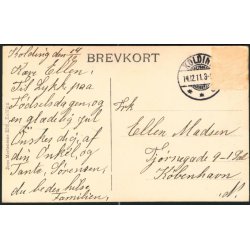 BREVKORT
Kolding den 14/12
Kære Ellen!
Til Lykke paa
Födselsdagen og
en glædelig Jul
Önskes dig af
din Onkel og
Tante, Sörensen,
du bedes hilse
Familien.
KOLDING
14.12.11.
Frk
Ellen Madsen
Tjörnegade 9-1 Sal
København
N.